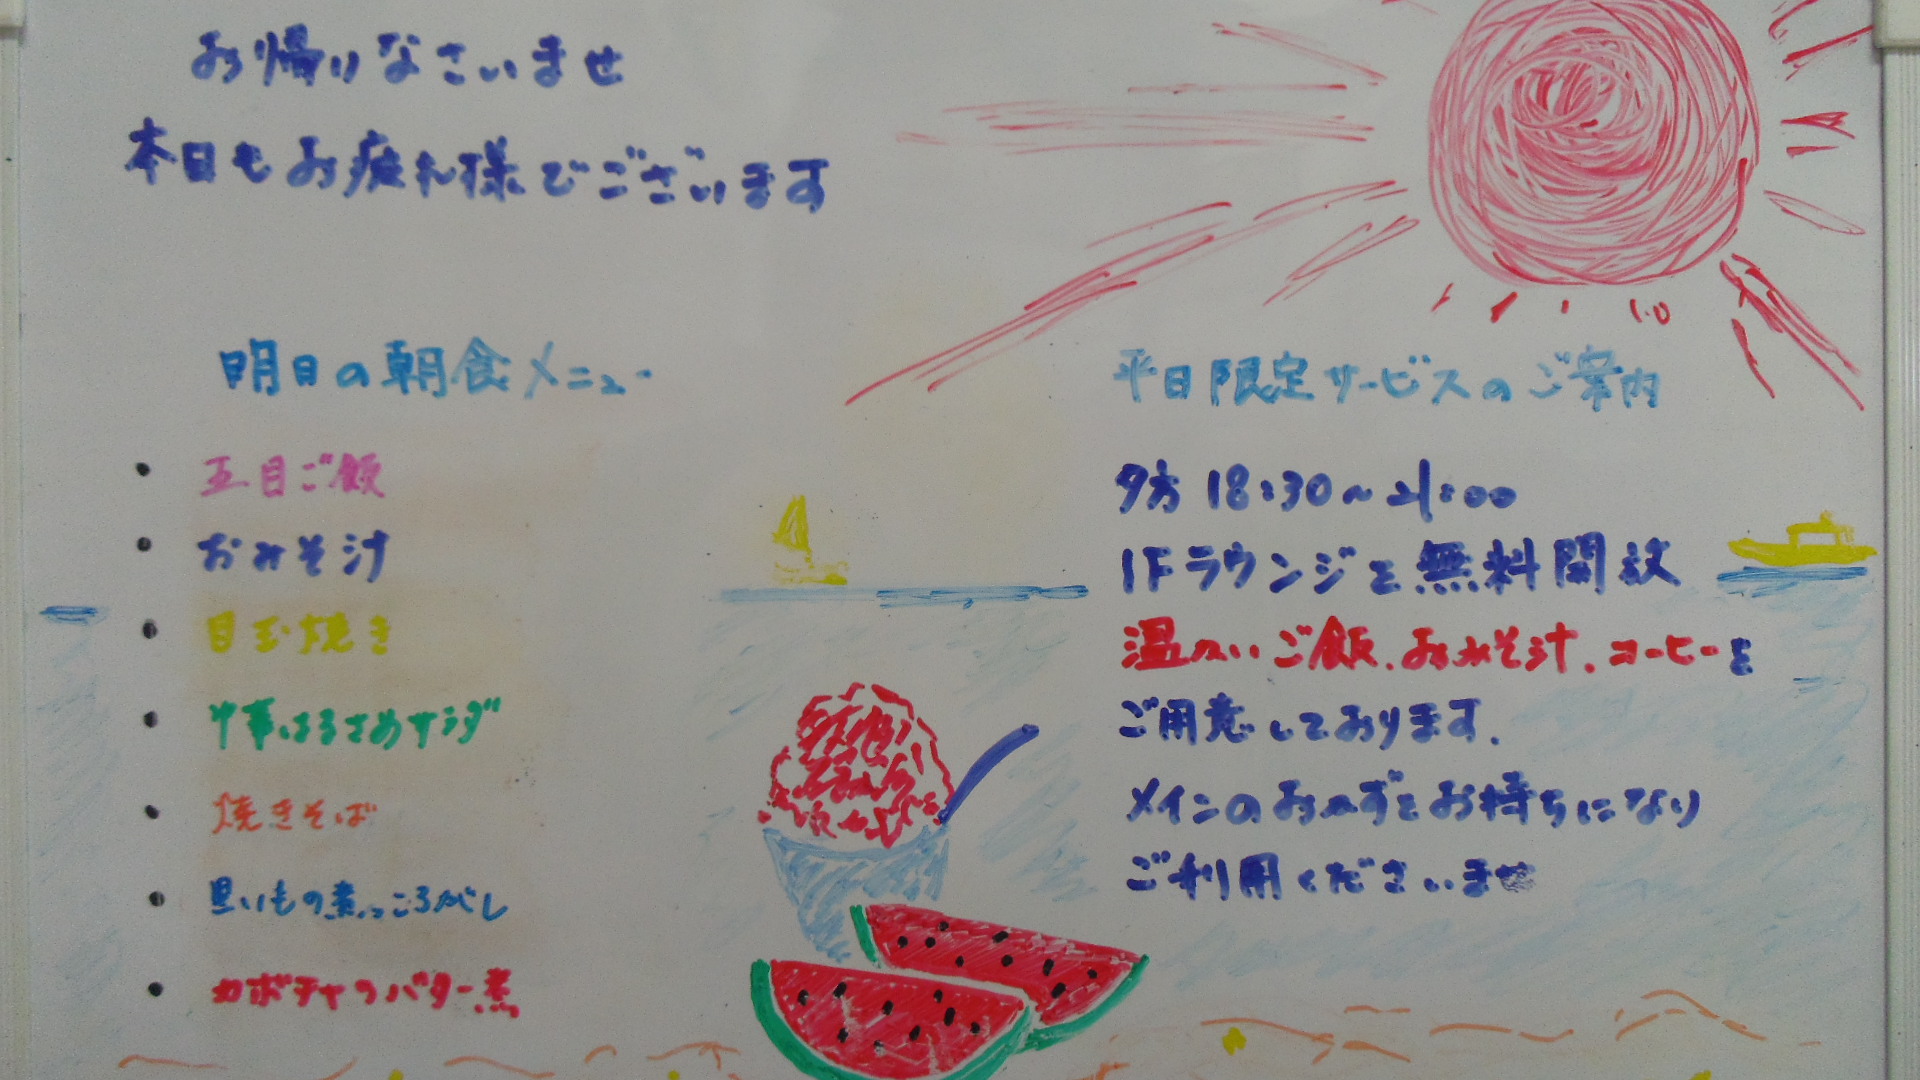 お帰りなさいませ
本日もお疲れ様でございます
明日の朝食メニュー
・五目ご飯
・おみそ汁
・目玉焼き
・中華はるさめサラダ
・焼きそば
・里いもの煮っころがし
・カボチャのバター煮
平日限定サービスのご案内
夕方 18:30～21:00
1Fラウンジを無料開放
温かいご飯、おみそ汁、コーヒーを
ご用意しております。
メインのおかずをお持ちになり
ご利用くださいませ